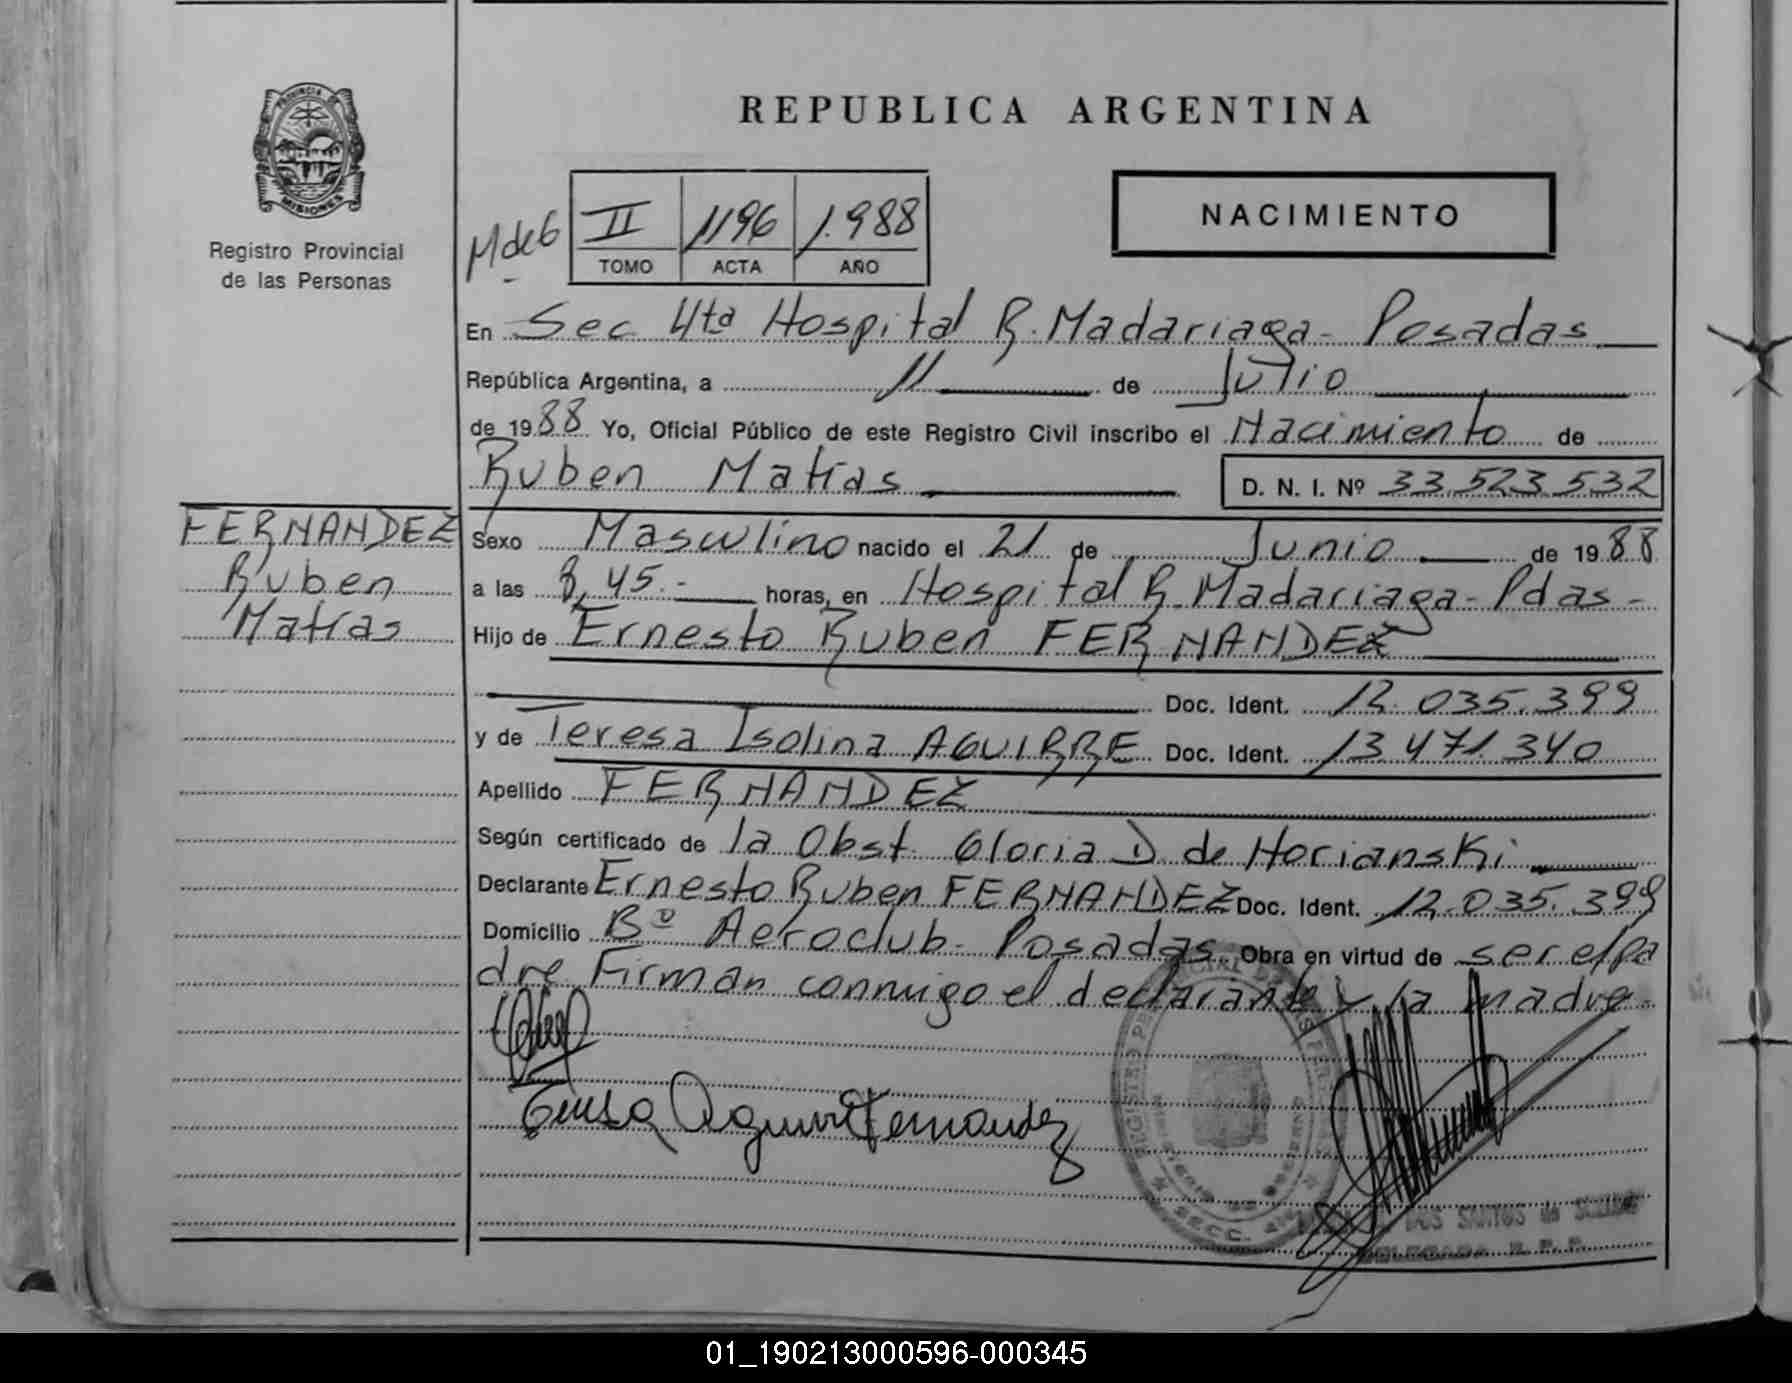 PROVINCIA DE
MISIONES
Registro Provincial
de las Personas
REPUBLICA ARGENTINA
NACIMIENTO
II 1196 1.988
TOMO ACTA AÑO
En Sec 4ta Hospital R. Madariaga - Posadas
República Argentina, a 11 de Julio
de 1988 Yo, Oficial Público de este Registro Civil inscribo el Nacimiento de
Ruben Matias D. N. I. Nº 33.523.532
FERNANDEZ
Ruben
Matias
Sexo Masculino nacido el 21 de Junio de 1988
a las 8,45.- horas, en Hospital R. Madariaga - Pdas -
Hijo de Ernesto Ruben FERNANDEZ
Doc. Ident. 12.035.399
y de Teresa Isolina AGUIRRE Doc. Ident. 13.471.340
Apellido FERNANDEZ
Según certificado de la Obst. Gloria D de Horianski
Declarante Ernesto Ruben FERNANDEZ Doc. Ident. 12.035.399
Domicilio Bº Aeroclub - Posadas Obra en virtud de ser el pa
dre Firman conmigo el declarante y la madre -
Teresa Aguirre Fernandez
DOS SANTOS de
DELEGADA R. P. P.
01_190213000596-000345